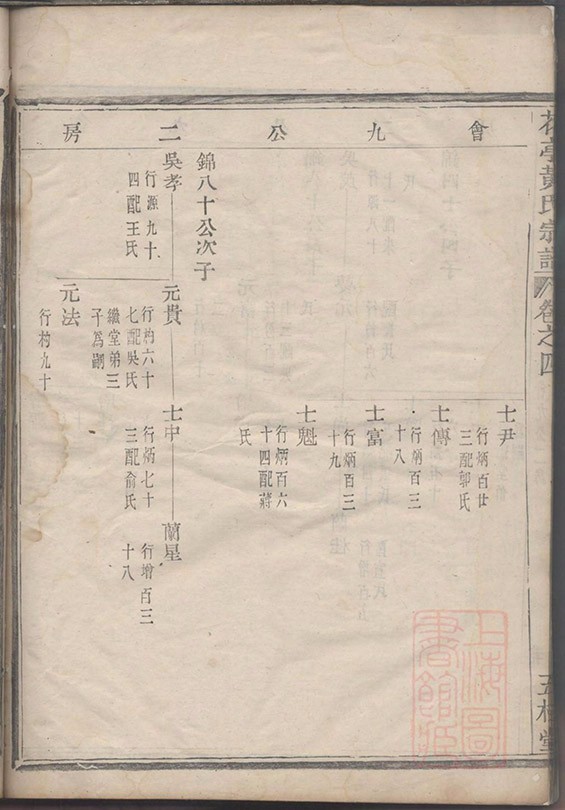 會九公二房
士尹
行炳百廿
三配卯氏
士傳
行炳百三
十八
士富
行炳百三
十九
士魁
行炳百六
十四配蔣
氏
錦八十公次子
吳孝
行源九十
四配王氏
元貴
行杓六十
七配吳氏
繼堂弟三
子爲嗣
士中
行炳七十
三配俞氏
蘭星
行增百三
十八
元法
行杓九十
黃氏宗譜
卷之四
上海圖
書館藏